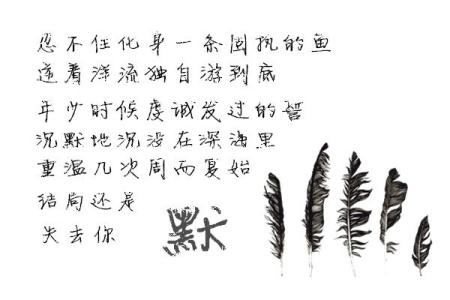 忍不住化身一条固执的鱼
逆着洋流独自游到底
年少时候虔诚发过的誓
沉默地沉没在深海里
重温几次周而复始
结局还是
失去你
默